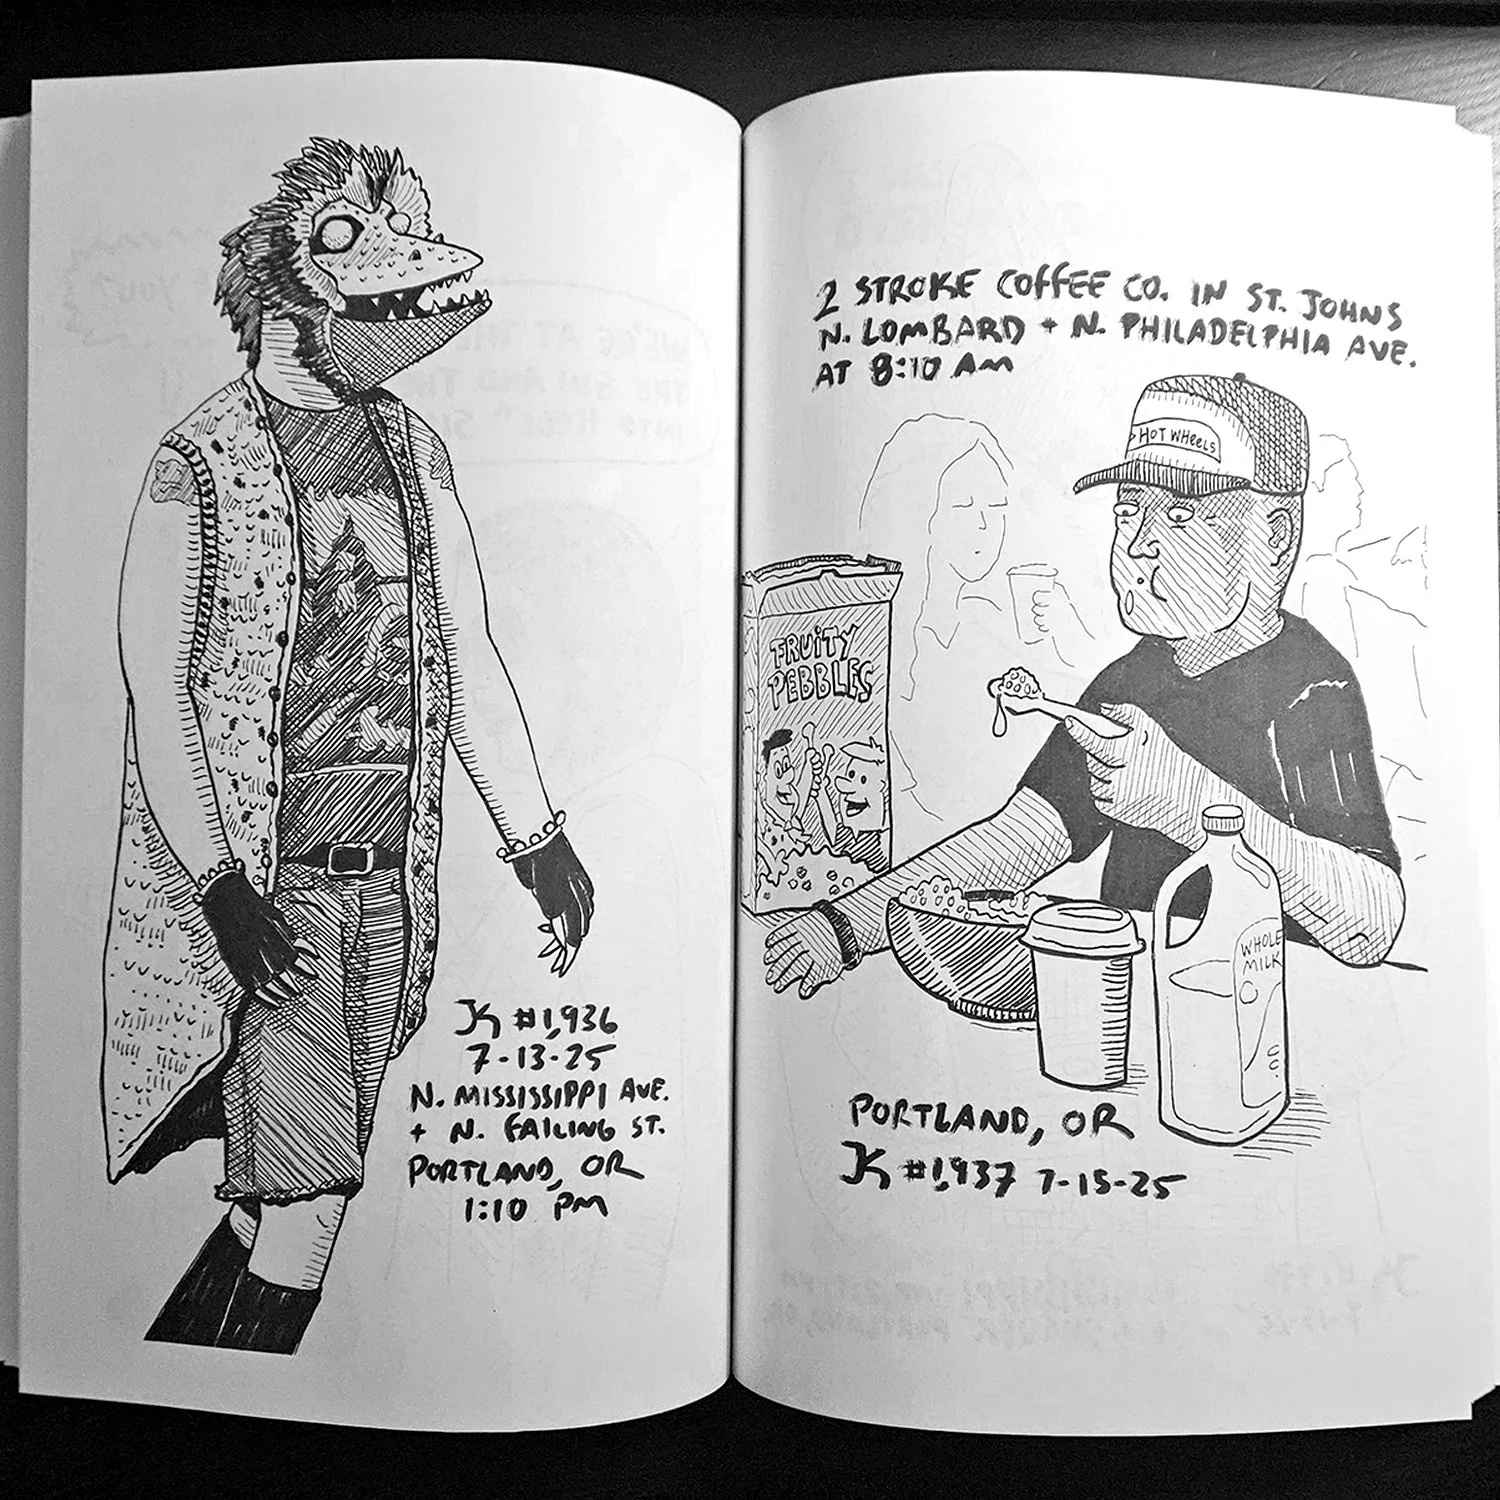 JK #1,936
7-13-25
N. MISSISSIPPI AVE.
+ N. FAILING ST.
PORTLAND, OR
1:10 PM
2 STROKE COFFEE CO. IN ST. JOHNS
N. LOMBARD + N. PHILADELPHIA AVE.
AT 8:10 AM
HOT WHEELS
FRUiTY
PEBBLES
WHOLE
MILK
PORTLAND, OR
JK #1,937 7-15-25